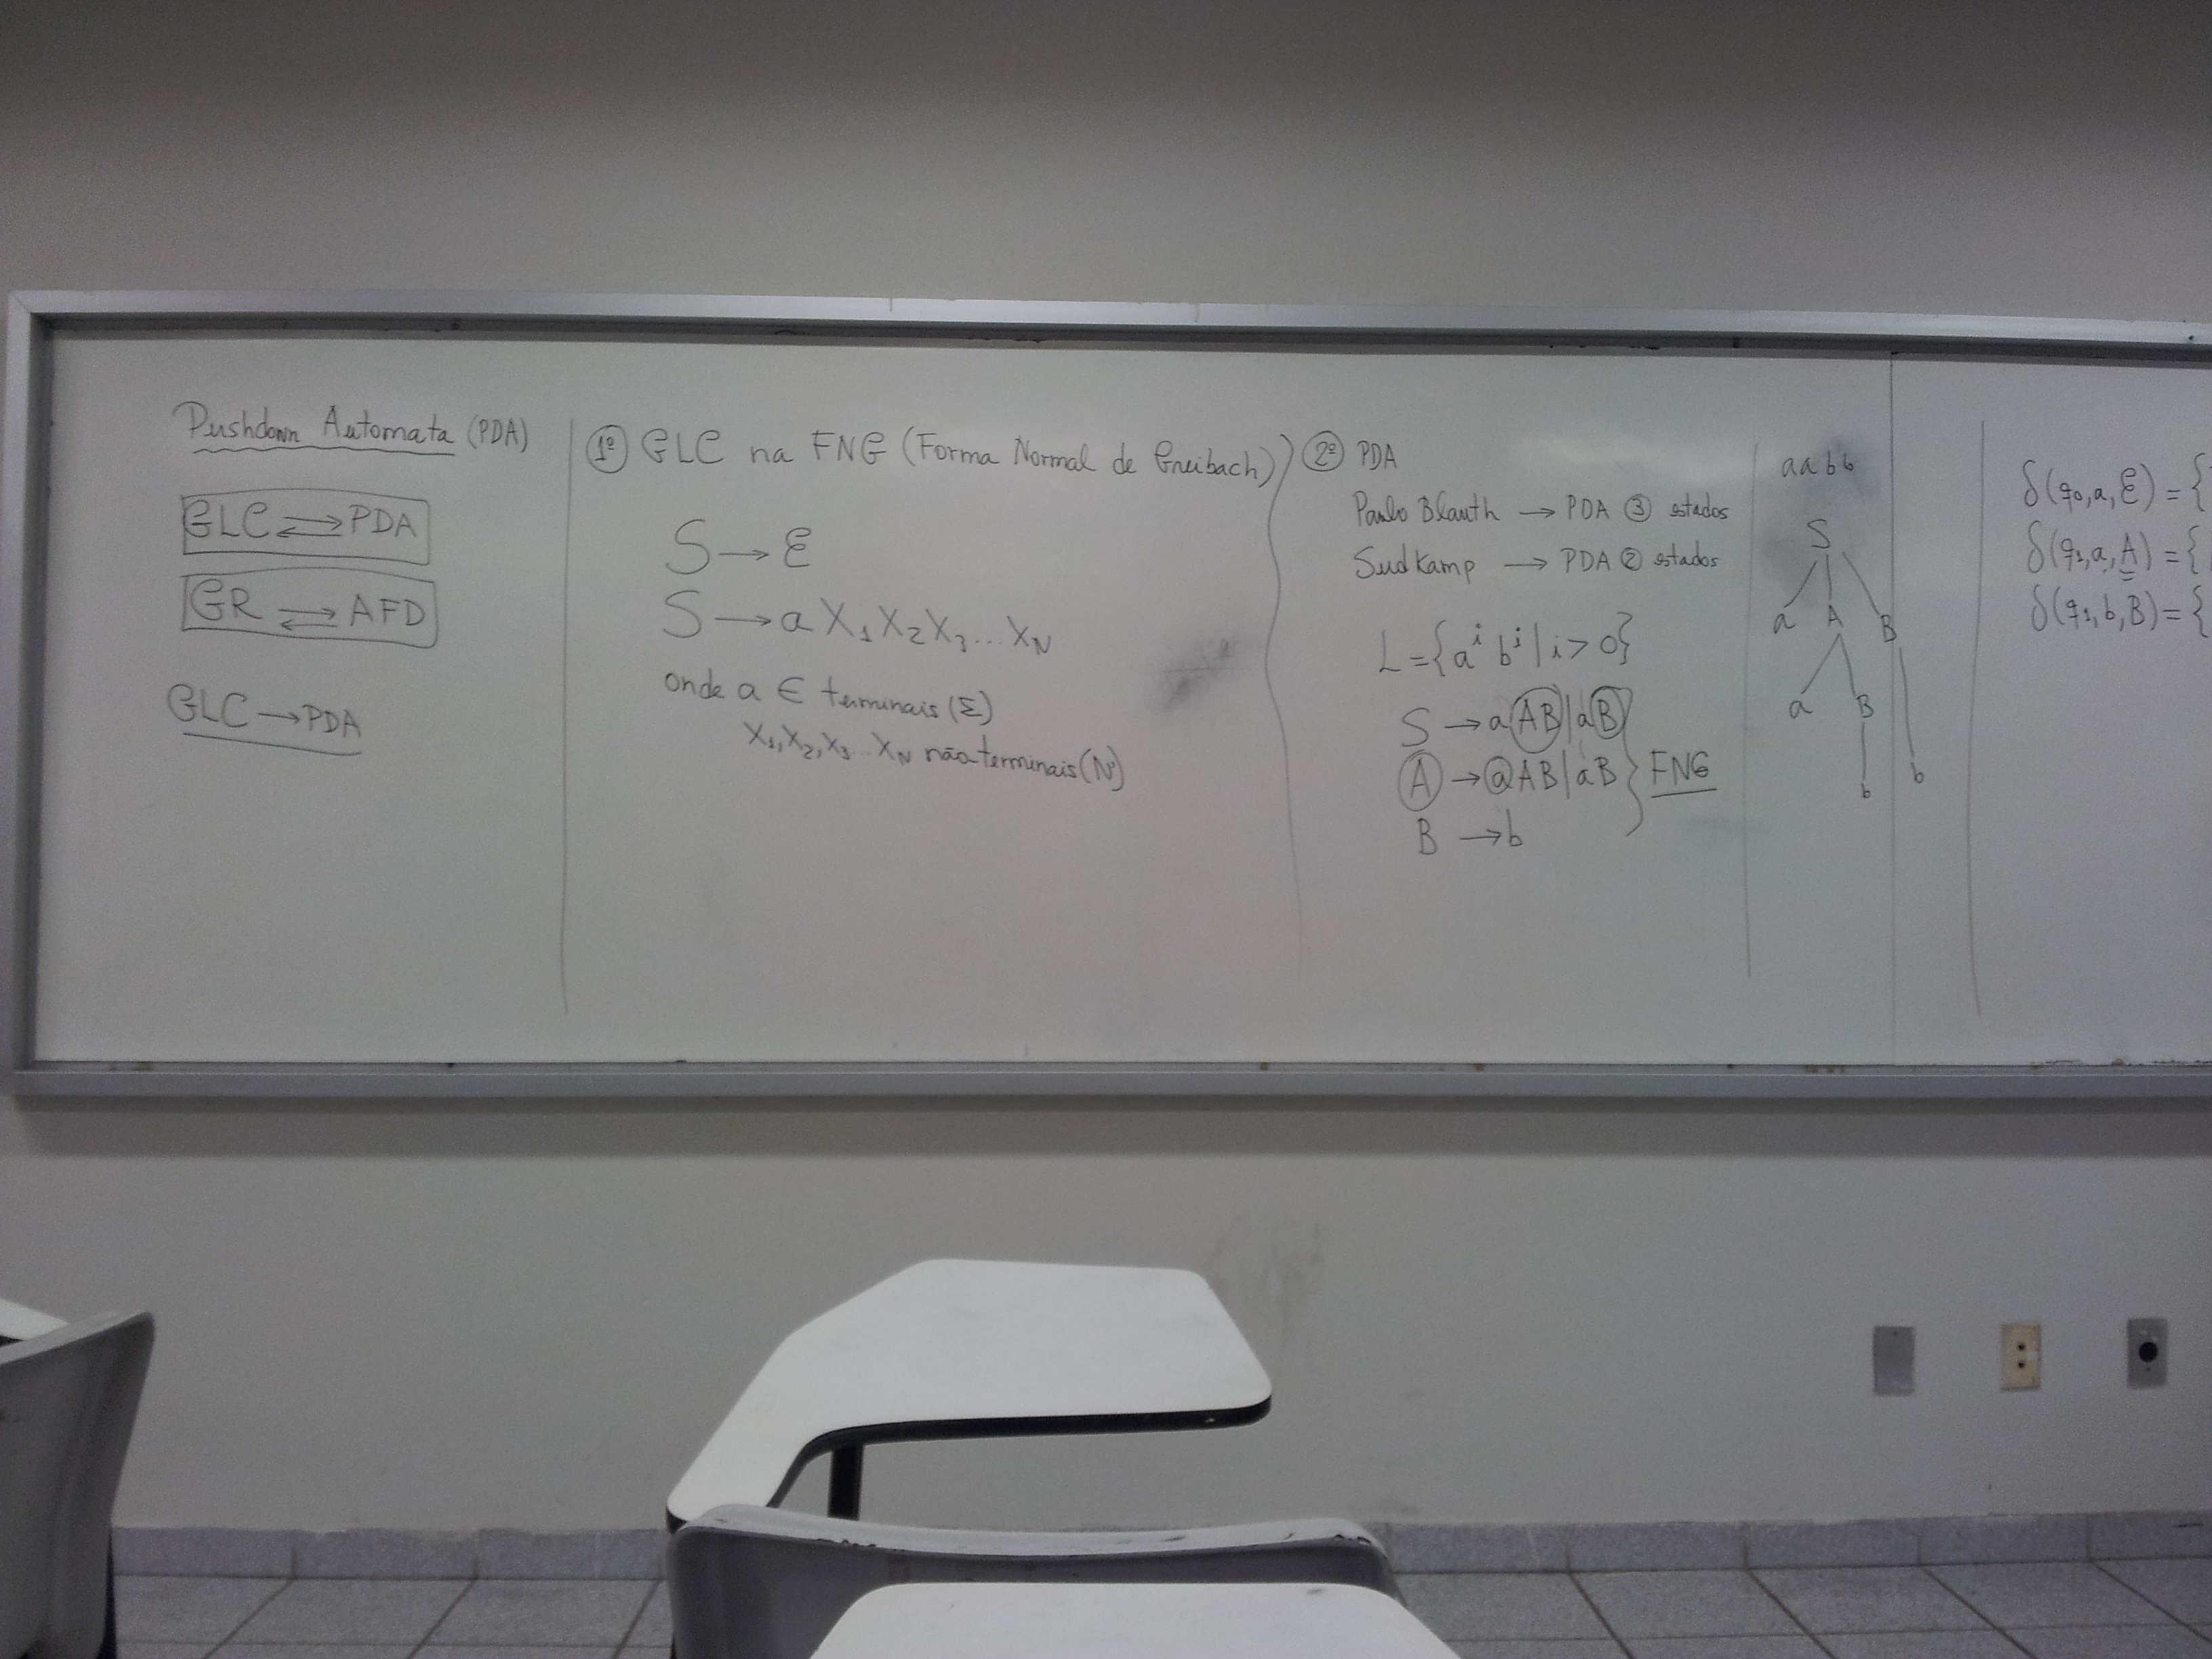 Pushdown Automata (PDA)
GLC ⇄ PDA
GR ⇄ AFD
GLC → PDA
1º GLC na FNG (Forma Normal de Greibach)
S → ε
S → a X₁ X₂ X₃ ... X_N
onde a ∈ terminais (Σ)
X₁, X₂, X₃ ... X_N não-terminais (N)
2º PDA
Paulo Blauth → PDA 3 estados
Sudkamp → PDA 2 estados
L = {aⁱ bⁱ | i > 0}
S → aAB | aB
A → aAB | aB } FNG
B → b
aabb
S
a A B
a B
b b
δ(q₀, a, ε) = {
δ(q₁, a, A) = {
δ(q₁, b, B) = {